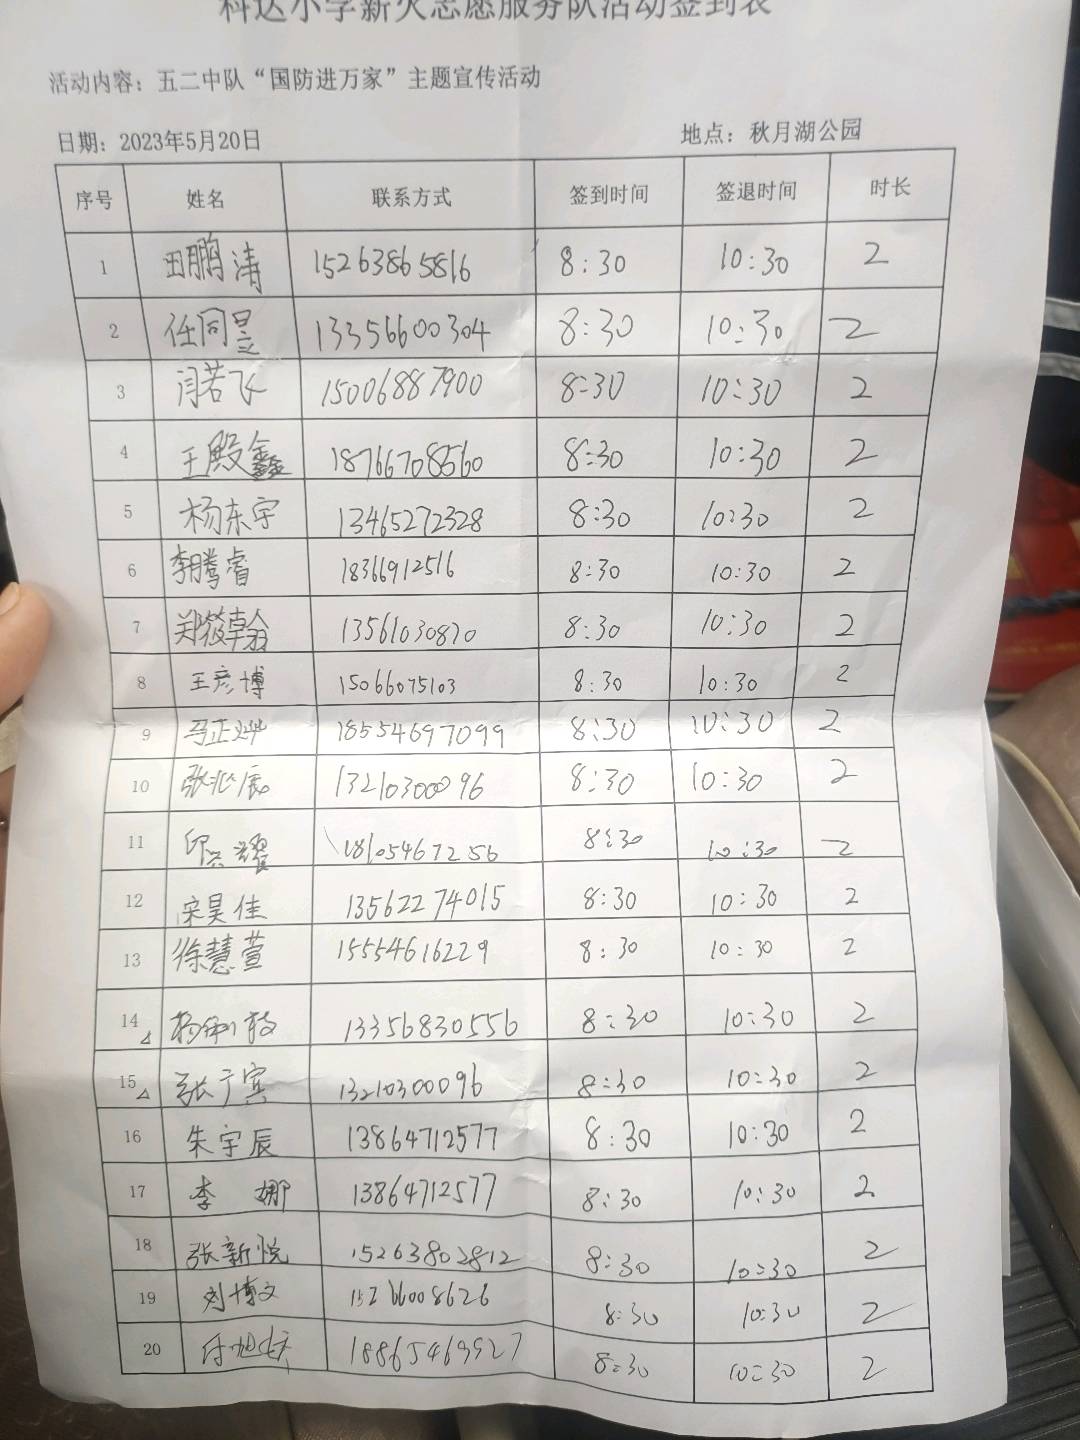 科达小学薪火志愿服务队活动签到表
活动内容：五二中队“国防进万家”主题宣传活动
日期：2023年5月20日 地点：秋月湖公园
序号 姓名 联系方式 签到时间 签退时间 时长
1 田鹏涛 15263865816 8:30 10:30 2
2 任同昱 13356600304 8:30 10:30 2
3 闫若飞 15006887900 8:30 10:30 2
4 王殿鑫 18766708560 8:30 10:30 2
5 杨东宇 13465272328 8:30 10:30 2
6 李腾睿 18366912516 8:30 10:30 2
7 郑筱翰 13561030870 8:30 10:30 2
8 王彦博 15066075103 8:30 10:30 2
9 马正烨 18554697099 8:30 10:30 2
10 张兆辰 13210300096 8:30 10:30 2
11 18105467256 8:30 10:30 2
12 宋昊佳 13562274015 8:30 10:30 2
13 徐慧萱 15554616229 8:30 10:30 2
14 13356830556 8:30 10:30 2
15 张广宾 13210300096 8:30 10:30 2
16 朱宇辰 13864712577 8:30 10:30 2
17 李娜 13864712577 8:30 10:30 2
18 张新悦 15263802812 8:30 10:30 2
19 刘博文 15266008626 8:30 10:30 2
20 8:30 10:30 2